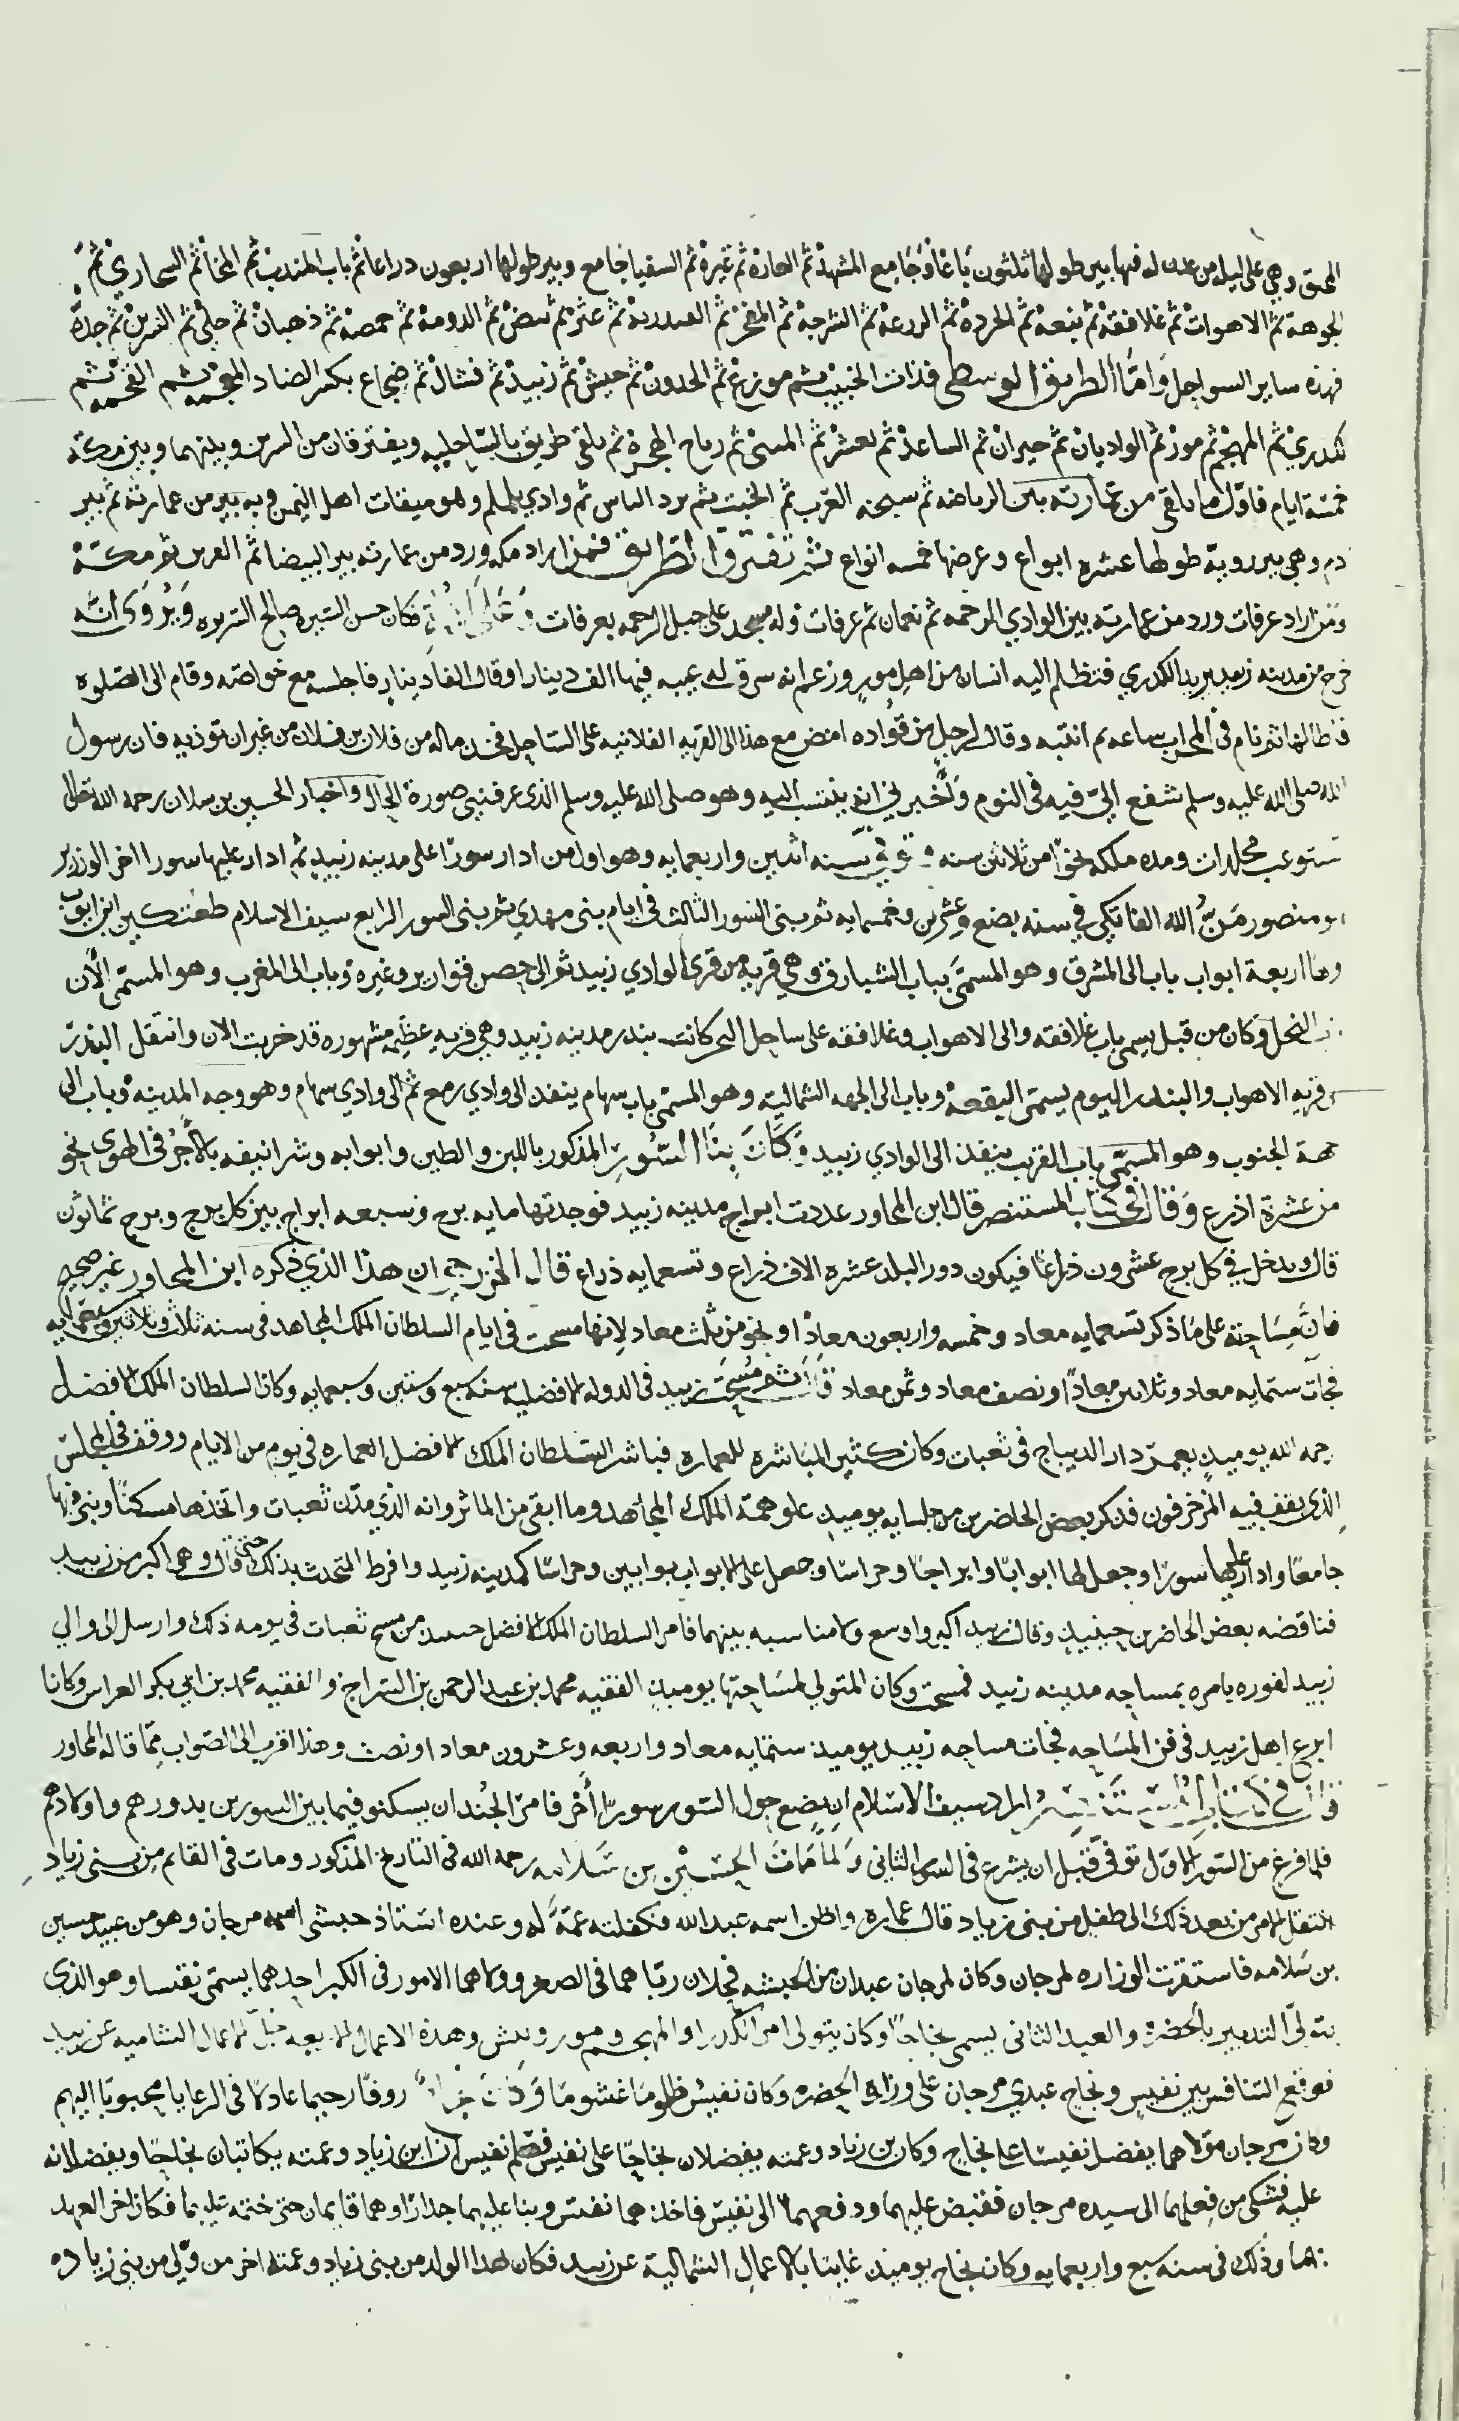 المخنق وهي على ليله من عدن له فيها بير طولها ثلثون باعا وجامع المشهد ثم العاره ثم عبره ثم السقيا جامع وبير طولها اربعون دراعا ثم باب المندب ثم المخا ثم السحاري ثم
الجوهه ثم الاهواب ثم غلافقه ثم نبعه ثم الجرده ثم الزرعه ثم الشرجه ثم المفجر ثم القنديره ثم عثر ثم بيض ثم الدومه ثم حمصه ثم ذهبان ثم حلي ثم السرين ثم جده
فهذه ساير السواحل واما الطريق الوسطى فذات الخبيت ثم موزع ثم الجدون ثم حيس ثم زبيد ثم فشال ثم ضجاع بكسر الضاد المعجمه ثم القحمه ثم
الكدري ثم المهجم ثم مور ثم الواديان ثم جيزان ثم الساعد ثم تعشر ثم المبنى ثم رياح الهجره ثم يلقى طريق الساحليه ويفترقان من السرين وبينهما وبين مكه
خمسة ايام فاول ما يلقى من عمارته بين الرياضه ثم سبخه الغرب ثم الخبت ثم يرد الناس ثم وادي يلملم ولهو ميقات اهل اليمن وبه بير من عمارته ثم بير
ادم وهي بير رويه طولها عشره ابواع وعرضها خمسه انواع ثم تفترق الطريق فمن اراد مكه ورد من عمارته بير البيضا ثم القرين ثم مكة
ومن اراد عرفات ورد من عمارته بين الوادي الرحمه ثم نعمان ثم عرفات وله مسجد على جبل الرحمه بعرفات فكان حسن السيره صالح السريره ويروى انه
خرج من مدينه زبيد يريد الكدري فتظلم اليه انسان من اهل مور وزعم انه سرق له عيبه فيها الف دينار او قال الفا دينار فاجلسه مع خواصه وقام الى الصلوة
فاطالها ثم نام في المحراب ساعه ثم انتبه وقال لرجل من قواده امض مع هذا الى القريه الفلانيه على الساحل فخذ ماله من فلان بن فلان من غير ان توذيه فان رسول
الله صلى الله عليه وسلم شفع الي فيه في النوم واخبرني انه ينتسب اليه وهو صلى الله عليه وسلم الذي عرفني صورة الحال واخبار الحسين بن سلامه رحمه الله تعالى
تستوعب مجلدات ومده ملكه نحوا من ثلاثين سنه وتوفي سنه اثنين واربعمايه وهو اول من ادار سورا على مدينه زبيد ثم ادار عليها سورا اخر الوزير
ابو منصور من الله الفاتكي في سنه بضع وعشرين وخمسمايه ثم بني السور الثالث في ايام بني مهدي ثم بني السور الرابع سيف الاسلام طغتكين ابن ايوب
ولها اربعة ابواب باب الى المشرق وهو المسمى بباب الشبارق وهي قريه من قرى الوادي زبيد ثم الى حصن قوارير وغيره وباب الى المغرب وهو المسمى الان
باب النخل وكان من قبل يسمى باب غلافقه والى الاهواب وغلافقه على ساحل البحر كانت بندر مدينه زبيد وهي قريه عظيمه مشهوره قد خربت الان وانتقل البندر
الى قريه الاهواب والبندر اليوم يسمى البقعه وباب الى الجهه الشماليه وهو المسمى باب سهام ينفذ الى وادي رمع ثم الى وادي سهام وهو وجه المدينه وباب الى
جهة الجنوب وهو المسمى باب القرتب ينفذ الى الوادي زبيد وكان بنا السور المذكور باللبن والطين وابوابه وشرانيفه بالاجر في الهوى نحو
من عشرة اذرع وقال في كتاب المستنصر قال ابن المجاور عددت ابراج مدينه زبيد فوجدتها مايه برج وتسعه ابراج بين كل برج وبرج ثمانون
قال ويدخل في كل برج عشرون ذراعا فيكون دور البلد عشره الاف ذراع وتسعمايه ذراع قال الخزرجي ان هذا الذي ذكره ابن المجاور غير صحيح
فان مساحته على ما ذكر تسعمايه معاد وخمسه واربعون معادا ونحو من ثلث معاد لانها مسحت في ايام السلطان الملك المجاهد في سنه ثلاث وثلاثين وسبعمايه
فجات ستمايه معاد وثلاثين معادا ونصف معاد وثمن معاد قال ثم مسحت زبيد في الدوله الافضليه سنه سبع وستين وسبعمايه وكان السلطان الملك الافضل
رحمه الله يوميذ يعمر دار الديباج في ثعبات وكان كثير المباشره للعماره فباشر السلطان الملك الافضل العماره في يوم من الايام ووقف في المجلس
الذي يقف فيه المزخرفون فذكر بعض الحاضرين من جلسايه يوميذ علو همة الملك المجاهد وما ابقى من الماثر وانه الذي مدن ثعبات واتخذها مسكنا وبنى فيها
جامعا وادار عليها سورا وجعل لها ابوابا وابراجا وحراسا وجعل على الابواب بوابين وحراسا كمدينه زبيد وافرط المتحدث بذلك حتى قال وهي اكبر من زبيد
فناقضه بعض الحاضرين حينيذ وقال زبيد اكبر واوسع ولا مناسبه بينهما فامر السلطان الملك الافضل حينيذ من مسح ثعبات في يومه ذلك وارسل الى والي
زبيد لفوره يامره بمساحه مدينه زبيد فمسحت وكان المتولي لمساحتها يوميذ الفقيه محمد بن عبد الرحمن بن السراج والفقيه محمد بن ابي بكر العراس وكانا
ابرع اهل زبيد في فن المساحه فجات مساحه زبيد يوميذ ستمايه معاد واربعه وعشرون معادا ونصف وهذا اقرب الى الصواب مما قاله المجاور
قال في كتاب المستنصر اراد سيف الاسلام ان يضع حول السور سورا اخر فامر الجندان يسكنو فيما بين السورين يدورهم واولادهم
فلما فرغ من السور الاول توفي قبل ان يشرع في السور الثاني ولما مات الحسين بن سلامه رحمه الله في التاريخ المذكور ومات في القايم من بني زياد
انتقل الامر من بعد ذلك الى طفل من بني زياد قال عماره واظن اسمه عبد الله فكفلته عمة له وعنده استاذ حبشي اسمه مرجان وهو من عبيد حسين
بن سلامه فاستقرت الوزاره لمرجان وكان لمرجان عبدان من الحبشه فحلان رباهما في الصغر وولاهما الامور في الكبر احدهما يسمى نفيسا وهو الذي
يتولى التدبير بالحضرة والعبد الثاني يسمى نجاحا وكان يتولى امر الكدرا والمهجم ومور وبيش وهذه الاعمال الاربعه جل الاعمال الشاميه عن زبيد
فوقع التنافس بين نفيس ونجاح عبدي مرجان على وزارة الحضره وكان نفيس ظلوما غشوما وكان نجاحا روفا رحيما عادلا في الرعايا محبوبا اليهم
وكان مرجان مولاهما يفضل نفيسا على نجاح وكان بن زياد وعمته يفضلان نجاحا على نفيس فعلم نفيس ان ابن زياد وعمته يكاتبان نجاحا ويفضلانه
عليه فشكى من فعلهما الى سيده مرجان فقبض عليهما ودفعهما الى نفيس فاخذهما نفيس وبنا عليهما جدارا وهما قايمان حتى ختمه عليهما فكان اخر العهد
بهما وذلك في سنه سبع واربعمايه وكان نجاح يوميذ غايبا بالاعمال الشماليه عن زبيد فكان هذا الولد من بني زياد وعمته اخر من ولي من بني زياد ه